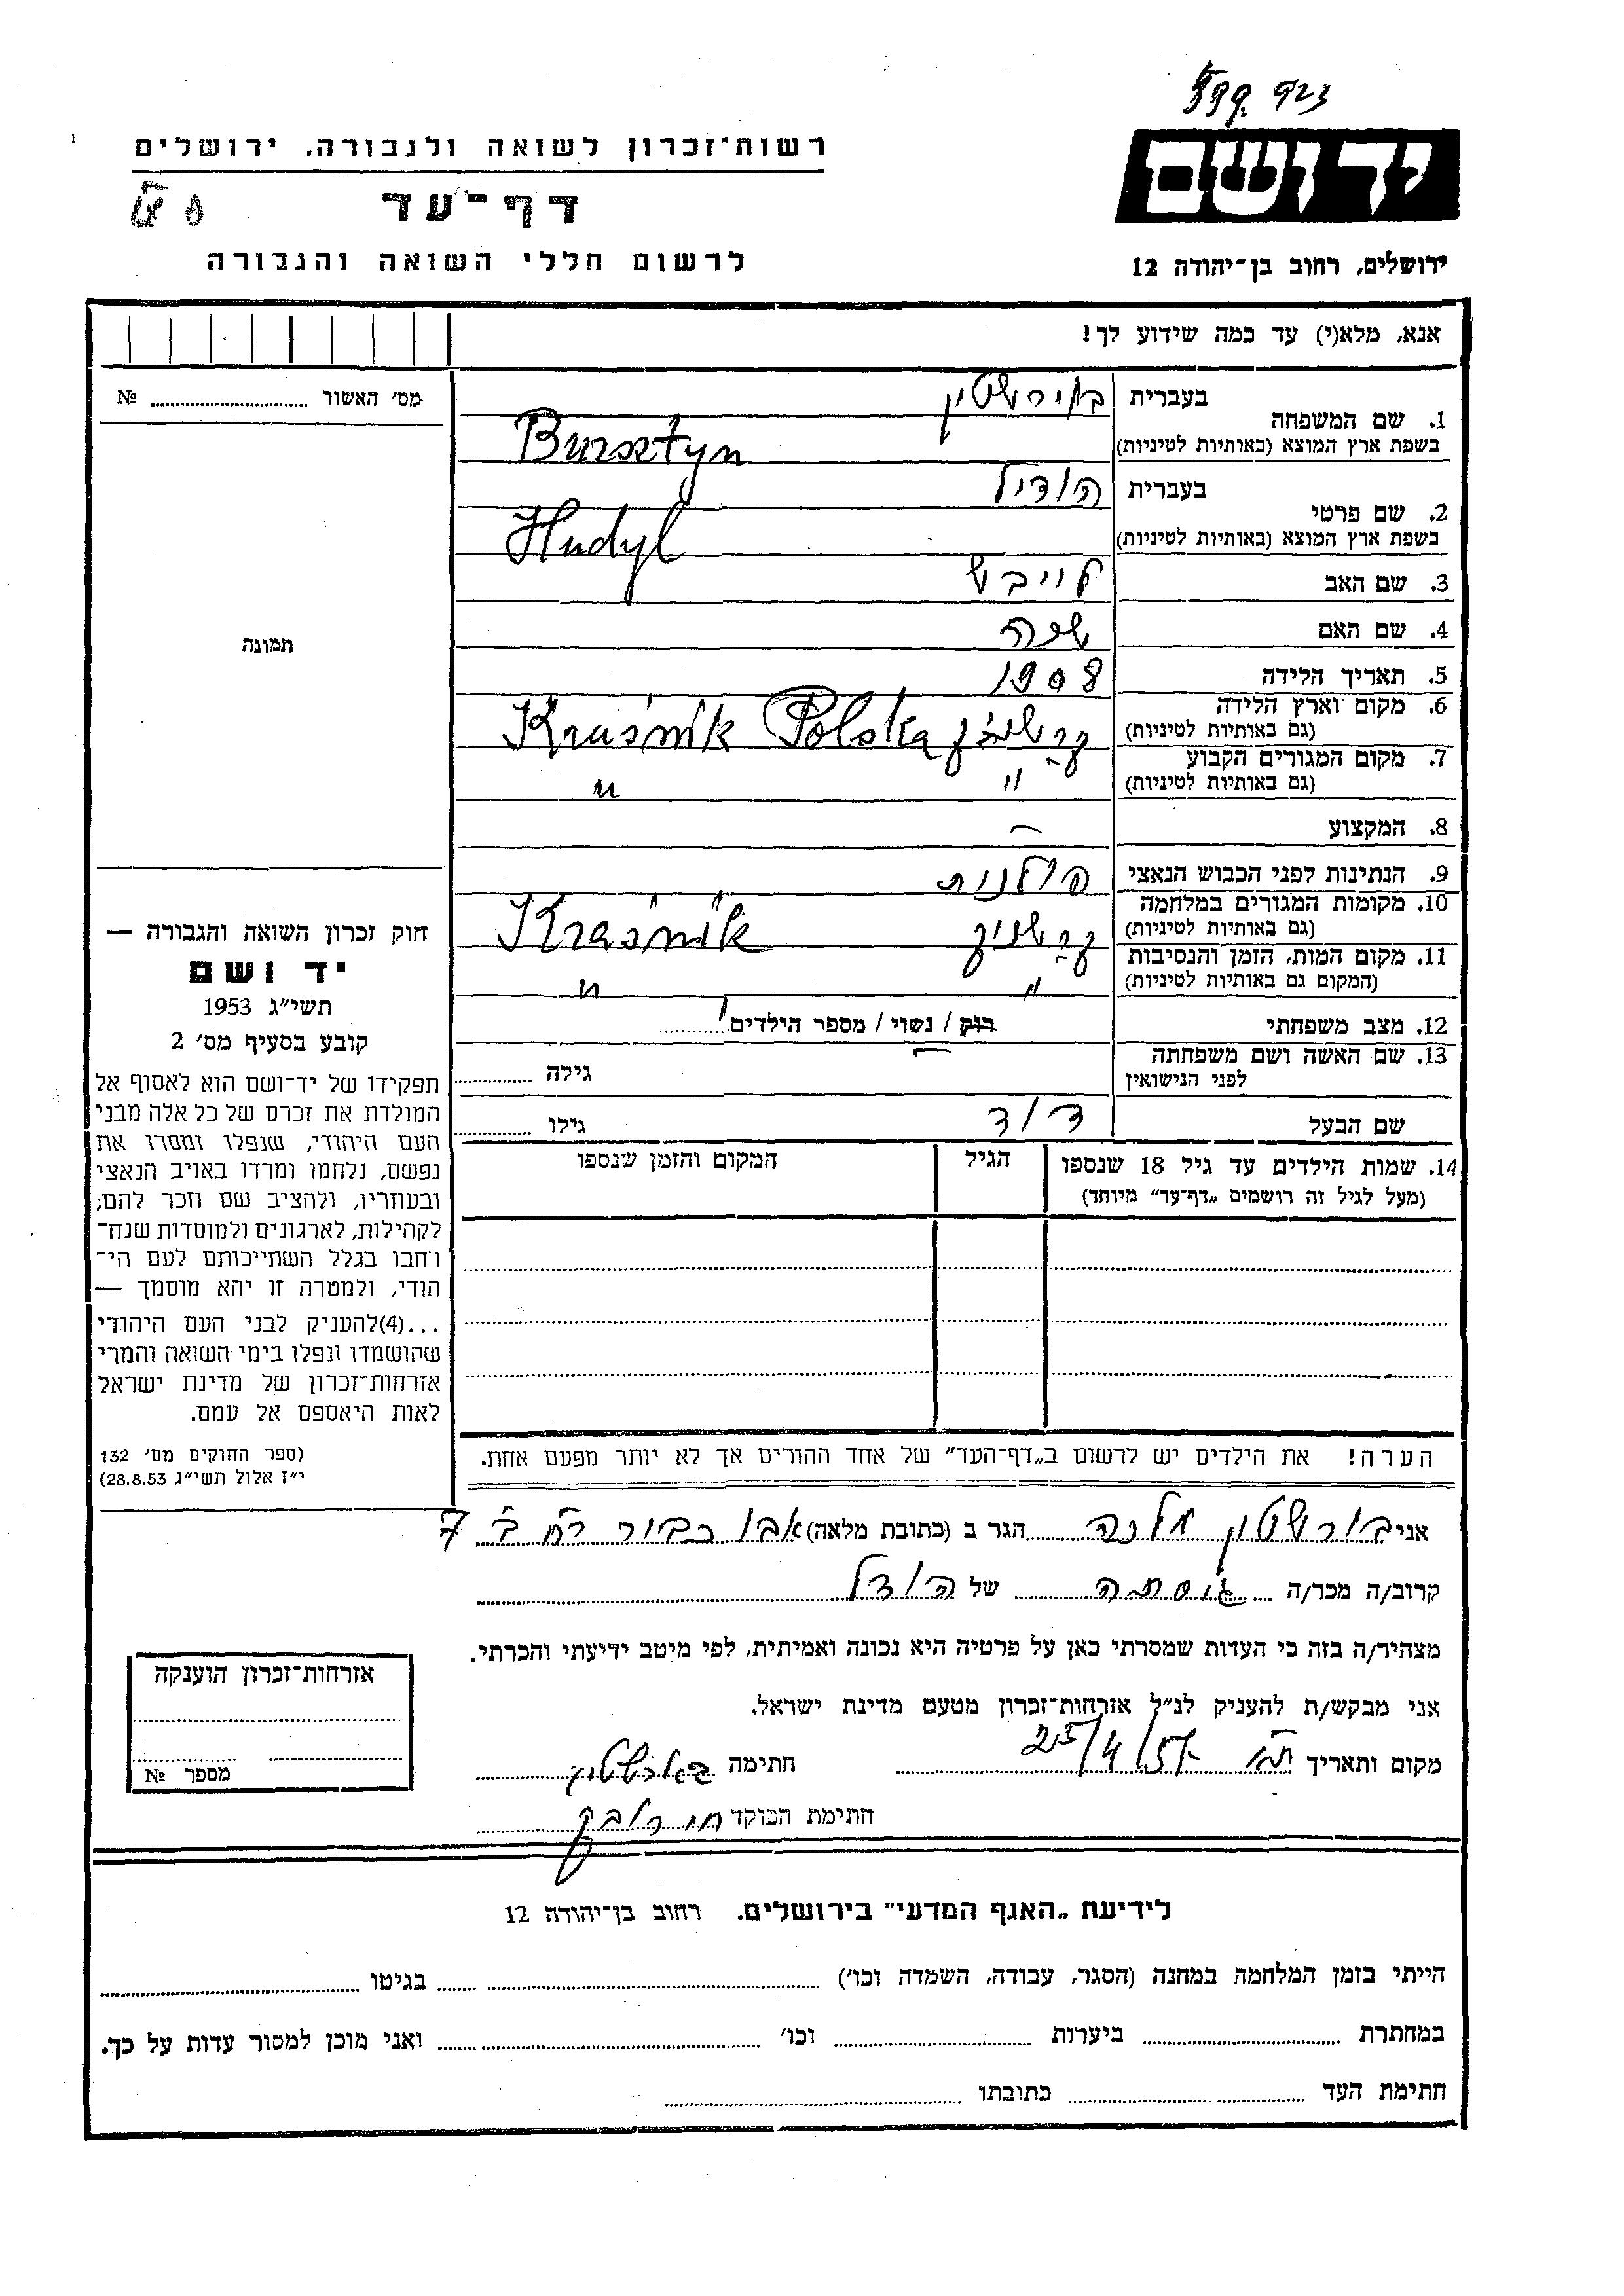 רשות־זכרון לשואה ולגבורה, ירושלים
דף־עד
לרשום חללי השואה והגבורה
יד ושם
ירושלים, רחוב בן־יהודה 12
אנא, מלא(י) עד כמה שידוע לך!
מס׳ האשור № ........
תמונה
1. שם המשפחה
בעברית
בשפת ארץ המוצא (באותיות לטיניות)
Bursztyn
2. שם פרטי
בעברית הודיל
בשפת ארץ המוצא (באותיות לטיניות)
Hudyl
3. שם האב לייבש
4. שם האם
5. תאריך הלידה 1908
6. מקום וארץ הלידה
(גם באותיות לטיניות)
Kraśnik Polska
7. מקום המגורים הקבוע
(גם באותיות לטיניות)
" "
8. המקצוע —
9. הנתינות לפני הכבוש הנאצי פולנית
10. מקומות המגורים במלחמה
(גם באותיות לטיניות)
קרשניק Kraśnik
11. מקום המות, הזמן והנסיבות
(המקום גם באותיות לטיניות)
" "
12. מצב משפחתי רוק / נשוי / מספר הילדים ........
13. שם האשה ושם משפחתה
לפני הנישואין
גילה ........
שם הבעל דוד גילו ........
14. שמות הילדים עד גיל 18 שנספו
(מעל לגיל זה רושמים „דף־עד” מיוחד)
הגיל
המקום והזמן שנספו
הערה! את הילדים יש לרשום ב„דף־העד” של אחד ההורים אך לא יותר מפעם אחת.
חוק זכרון השואה והגבורה —
יד ושם
תשי״ג 1953
קובע בסעיף מס׳ 2
תפקידו של יד־ושם הוא לאסוף אל
המולדת את זכרם של כל אלה מבני
העם היהודי, שנפלו ומסרו את
נפשם, נלחמו ומרדו באויב הנאצי
ובעוזריו, ולהציב שם וזכר להם,
לקהילות, לארגונים ולמוסדות שנח־
רחבו בגלל השתייכותם לעם הי־
הודי, ולמטרה זו יהא מוסמך —
...(4)להעניק לבני העם היהודי
שהושמדו ונפלו בימי השואה והמרי
אזרחות־זכרון של מדינת ישראל
לאות היאספם אל עמם.
(ספר החוקים מס׳ 132
י״ז אלול תשי״ג 28.8.53)
אני בורשטין מלכה הגר ב (כתובת מלאה) אבו כביר 7
קרוב/ה מכר/ה גיסתה של הודל
מצהיר/ה בזה כי העדות שמסרתי כאן על פרטיה היא נכונה ואמיתית, לפי מיטב ידיעתי והכרתי.
אני מבקש/ת להעניק לנ״ל אזרחות־זכרון מטעם מדינת ישראל.
מקום ותאריך ת״א 25/4/57 חתימה
חתימת הפוקד
אזרחות־זכרון הוענקה
מספר №
לידיעת „האגף המדעי” בירושלים. רחוב בן־יהודה 12
הייתי בזמן המלחמה במחנה (הסגר, עבודה, השמדה וכו׳) ........ בגיטו ........
במחתרת ........ ביערות ........ וכו׳ ........ ואני מוכן למסור עדות על כך.
חתימת העד ........ כתובתו ........